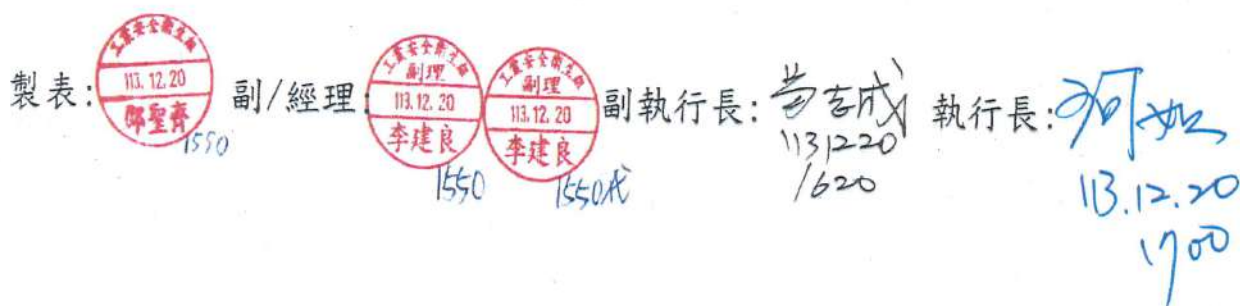 製表:
工業安全衛生組
113.12.20
鄭聖齊
1550
副/經理:
工業安全衛生組
副理
113.12.20
李建良
1550
工業安全衛生組
副理
113.12.20
李建良
1550代
副執行長:
1131220
1620
執行長:
113.12.20
1700